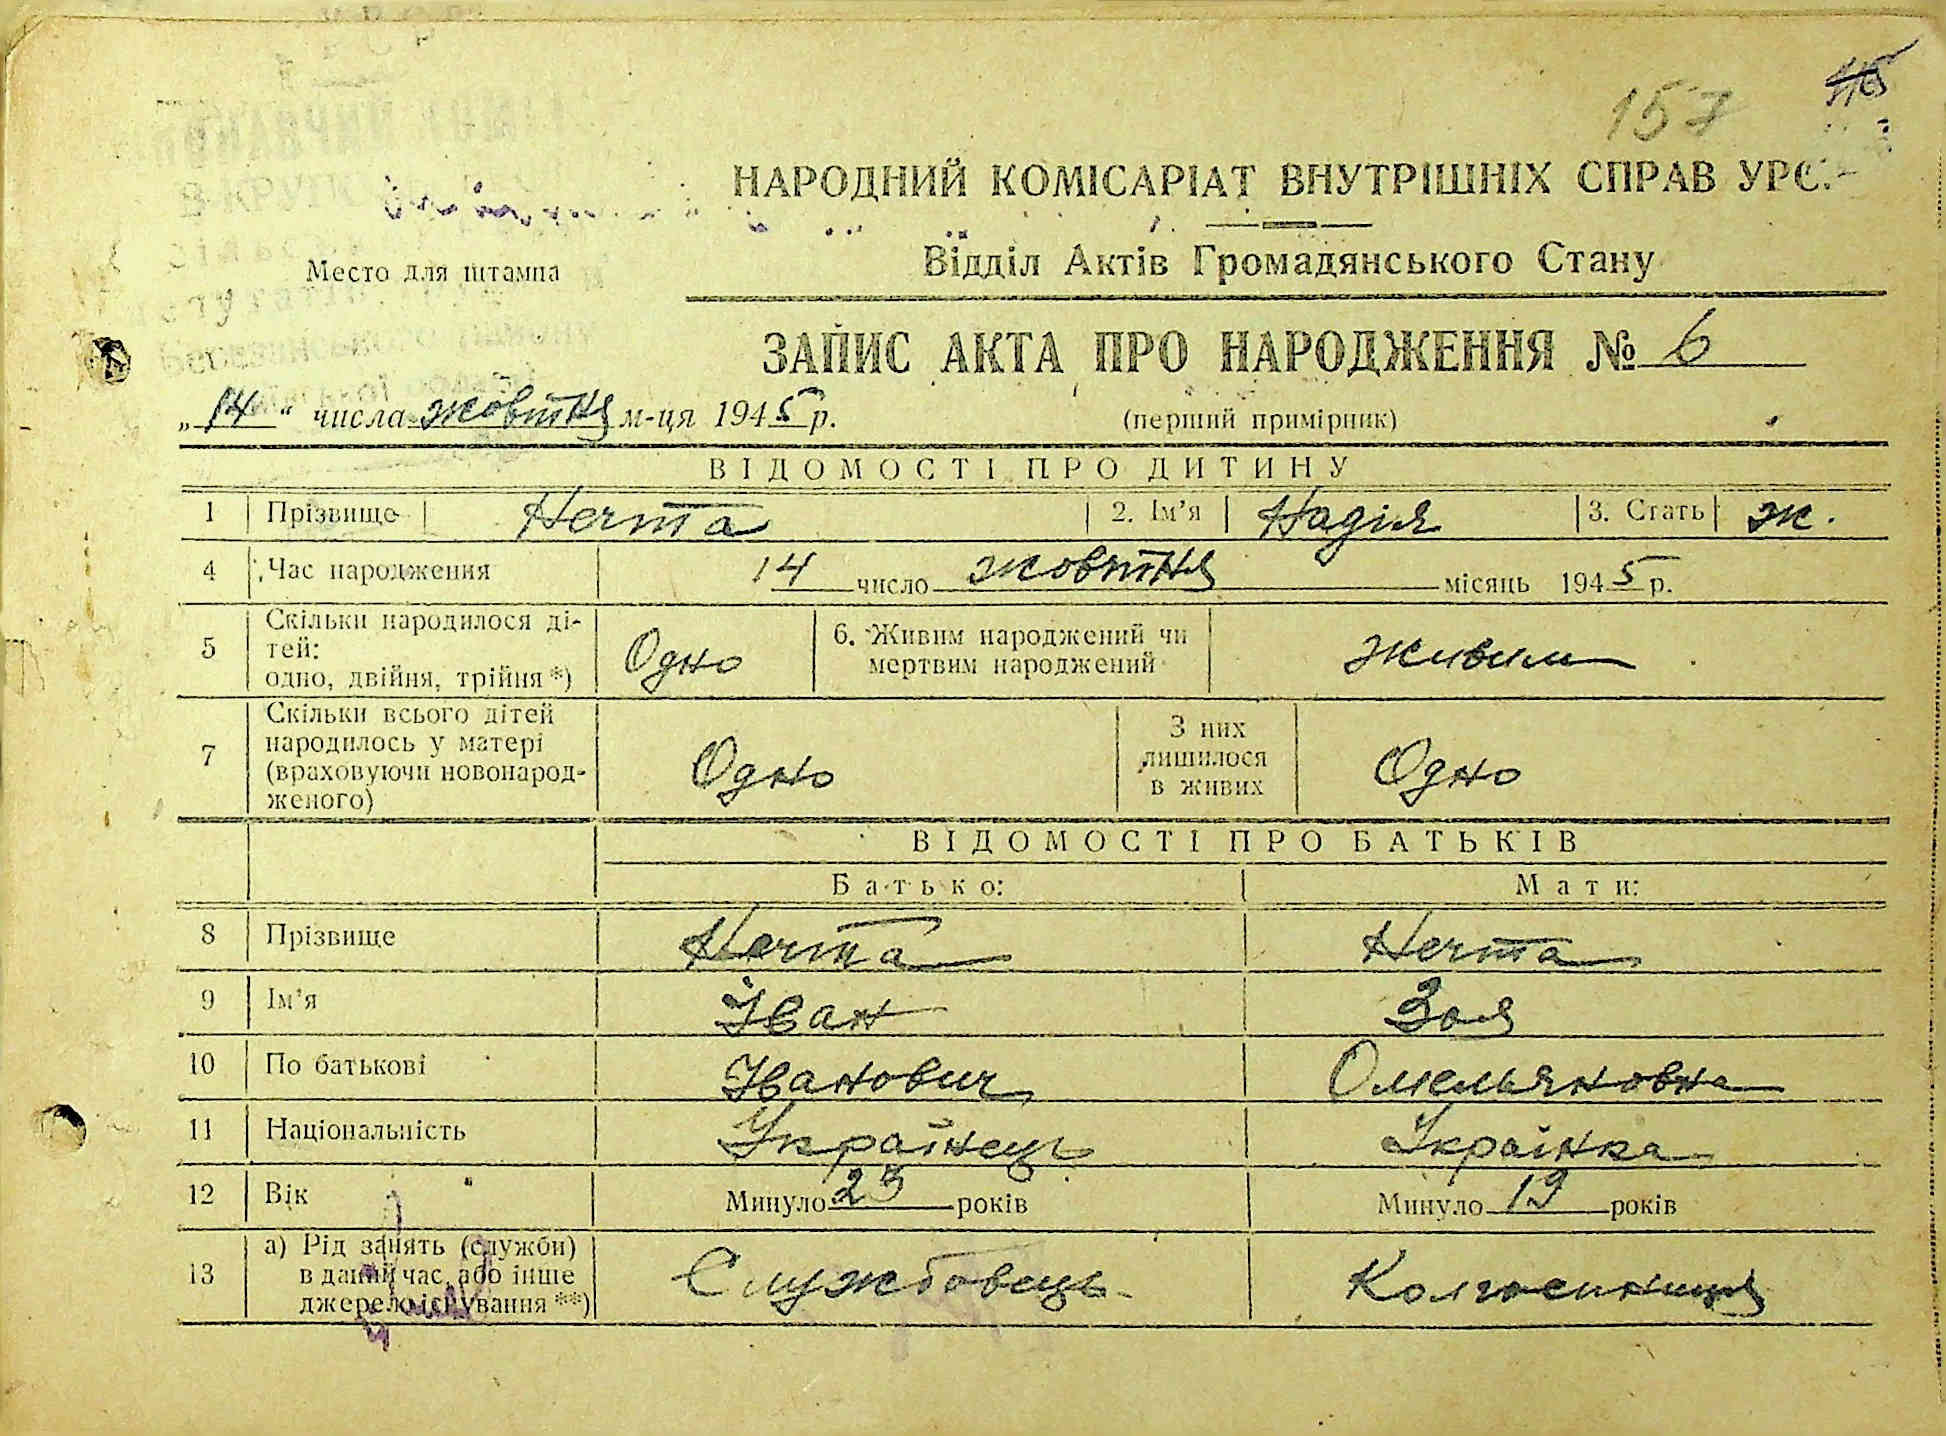 157
НАРОДНИЙ КОМІСАРІАТ ВНУТРІШНІХ СПРАВ УРС.
Відділ Актів Громадянського Стану
Место для штампа
ЗАПИС АКТА ПРО НАРОДЖЕННЯ № 6
„14“ числа жовтня м-ця 1945 р.
(перший примірник)
ВІДОМОСТІ ПРО ДИТИНУ
1 Прізвище Нечта 2. Ім’я Надія 3. Стать ж.
4 Час народження 14 число жовтня місяць 1945 р.
5 Скільки народилося ді-
тей:
одно, двійня, трійня *) Одно 6. Живим народжений чи
мертвим народжений живим
7 Скільки всього дітей
народилось у матері
(враховуючи новонарод-
женого) Одно З них
лишилося
в живих Одно
ВІДОМОСТІ ПРО БАТЬКІВ
Батько: Мати:
8 Прізвище Нечта Нечта
9 Ім’я Іван Зоя
10 По батькові Іванович Омельяновна
11 Національність Українець Українка
12 Вік Минуло 23 років Минуло 19 років
13 а) Рід занять (служби)
в даний час, або інше
джерело існування **) Службовець Колгоспниця